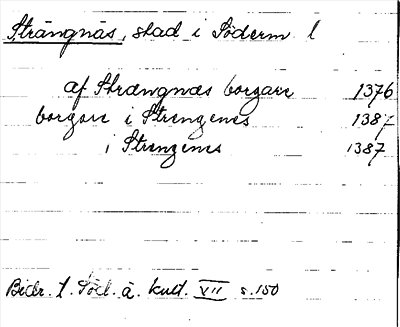 Strängnäs, stad i Söderm l
af Strængnæs borgare 1376
borgare i Strengenes 1387
i Strengenes 1387
Bidr. t. Söd. ä. kult. VII s. 150